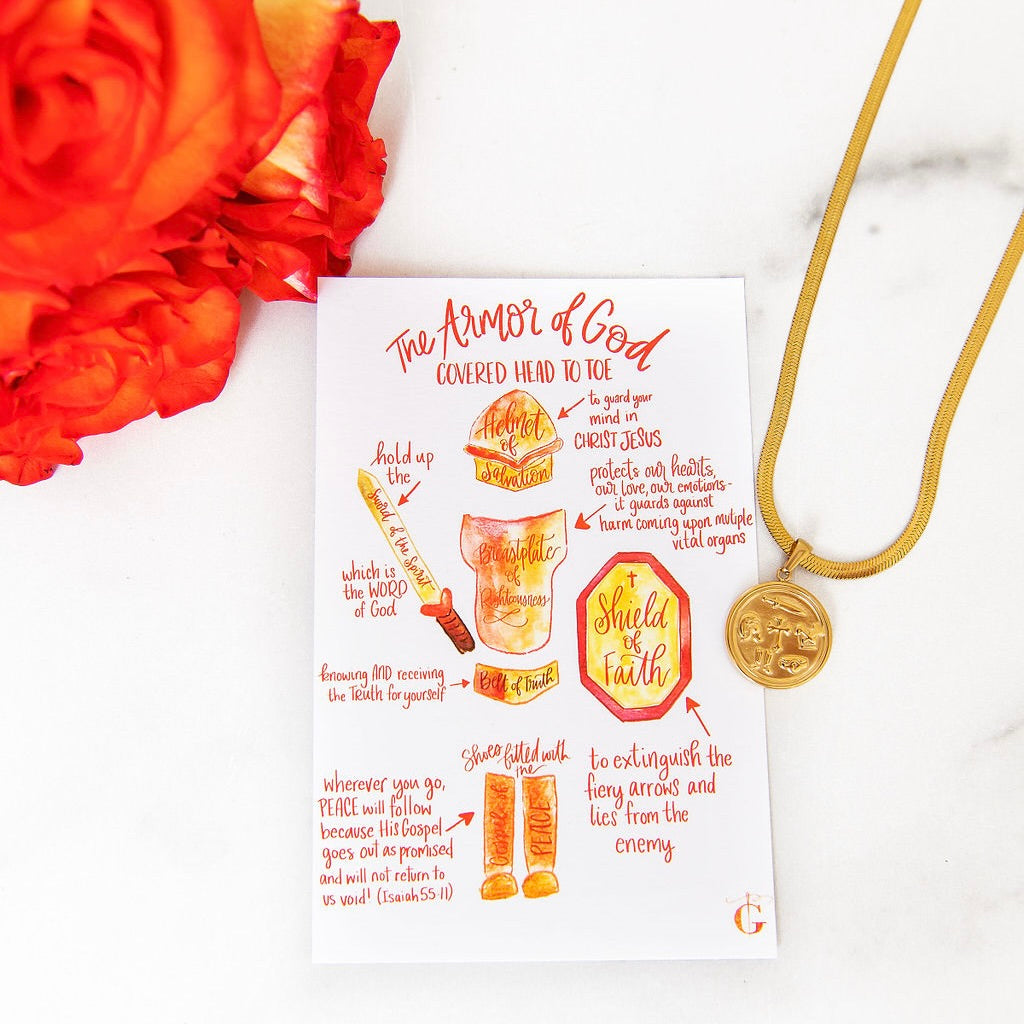 The Armor of God
COVERED HEAD TO TOE
Helmet
of
Salvation
to guard your
mind in
CHRIST JESUS
hold up
the
Sword of the Spirit
which is
the WORD
of God
protects our hearts,
our love, our emotions-
it guards against
harm coming upon mutiple
vital organs
Breastplate
of
Righteousness
Shield
of
Faith
knowing AND receiving
the TRUTH for yourself
Belt of Truth
to extinguish the
fiery arrows and
lies from the
enemy
Shoes fitted with
the
Gospel of
PEACE
Wherever you go,
PEACE will follow
because His Gospel
goes out as promised
and will not return to
us void! (Isaiah 55:11)
G